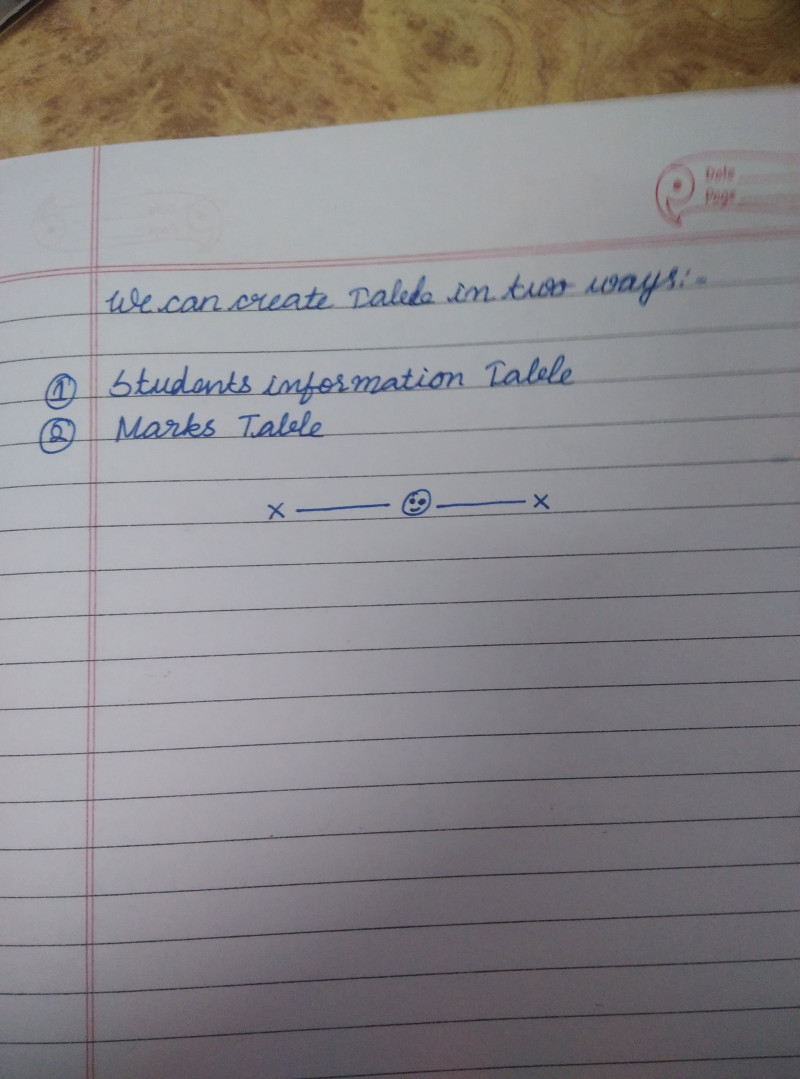 Date
Page
We can create Table in two ways:-
① Students information Table
② Marks Table
x ——— ☺ ——— x